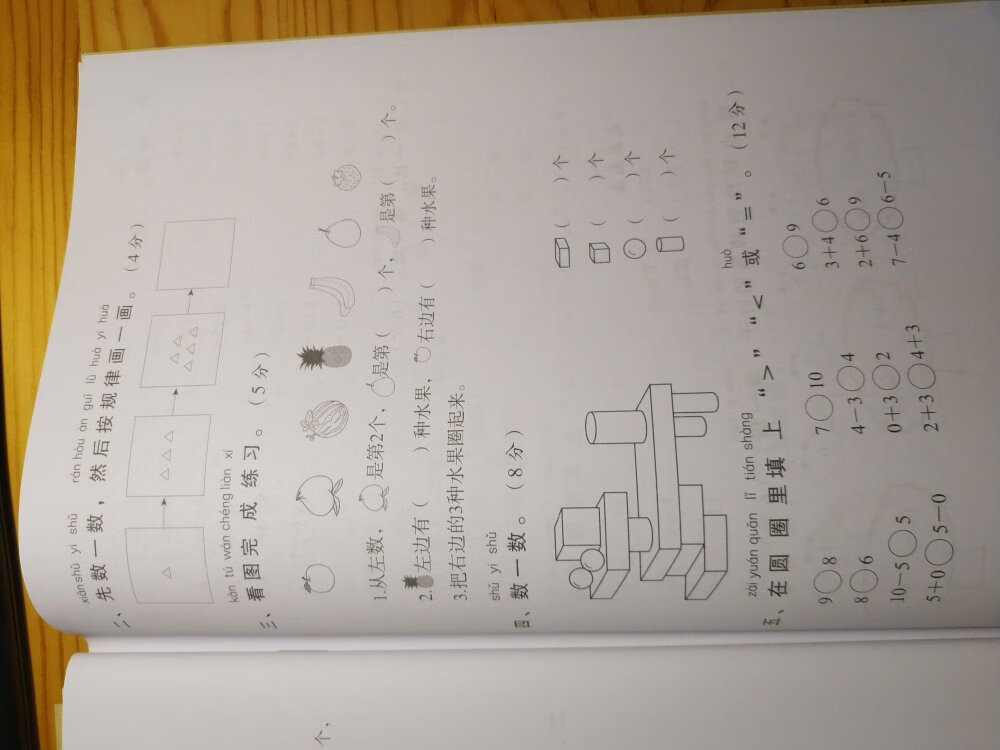 xiān shǔ yi shǔ rán hòu àn guī lǜ huà yi huà
二、先数一数，然后按规律画一画。（4分）
kàn tú wán chéng liàn xí
三、看图完成练习。（5分）
1.从左数，是第2个，是第（ ）个，是第（ ）个。
2.左边有（ ）种水果，右边有（ ）种水果。
3.把右边的3种水果圈起来。
shǔ yi shǔ
四、数一数。（8分）
（ ）个
（ ）个
（ ）个
（ ）个
zài yuán quān lǐ tián shàng huò
五、在圆圈里填上“＞”“＜”或“＝”。（12分）
9○8 7○10 6○9
8○6 4－3○4 3＋4○6
10－5○5 0＋3○2 2＋6○9
5＋0○5－0 2＋3○4＋3 7－4○6－5
个，